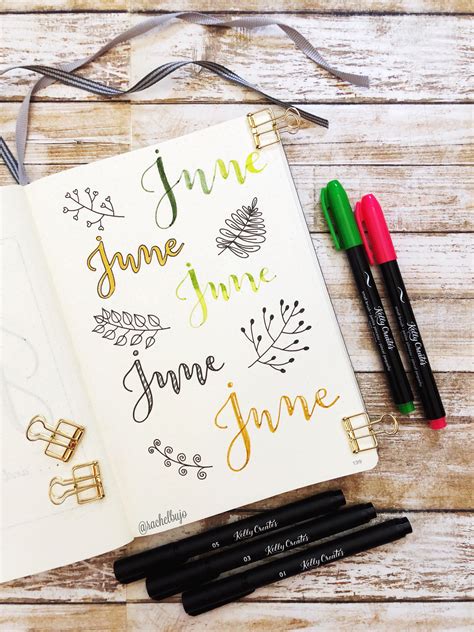 June
June
June
June
June
@rachelbujo
139
Kelly Creates
Kelly Creates
05 Kelly Creates
03 Kelly Creates
01 Kelly Creates